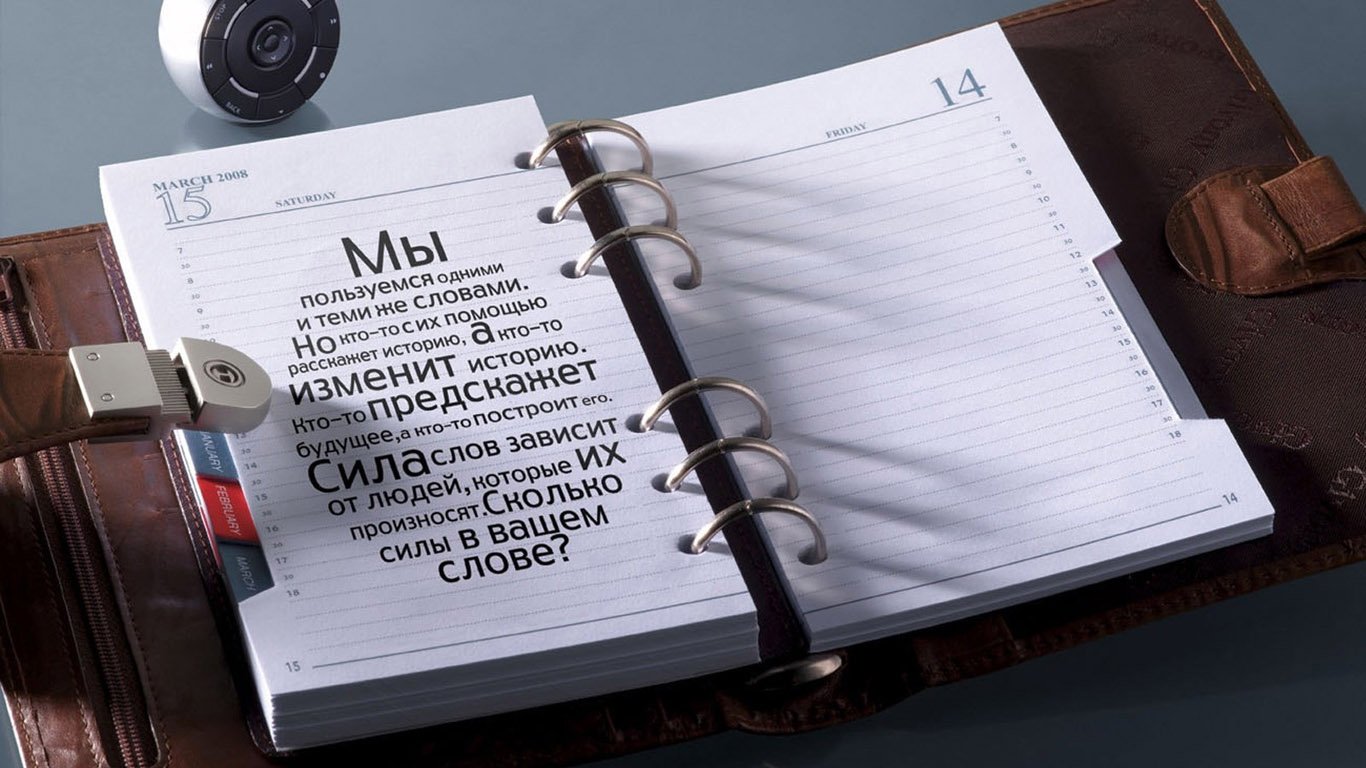 STOP
BACK
MARCH 2008
15
SATURDAY
7
30
8
30
9
Мы
пользуемся одними
и теми же словами.
Но кто-то с их помощью
расскажет историю, а кто-то
изменит историю.
Кто-то предскажет
будущее, а кто-то построит его.
Сила слов зависит
от людей, которые их
произносят. Сколько
силы в вашем
слове?
14
30
15
30
16
30
17
30
18
15
JANUARY
FEBRUARY
MARCH
14
FRIDAY
7
30
8
30
9
30
10
30
11
30
12
30
13
30
14
30
15
30
16
30
17
30
18
14